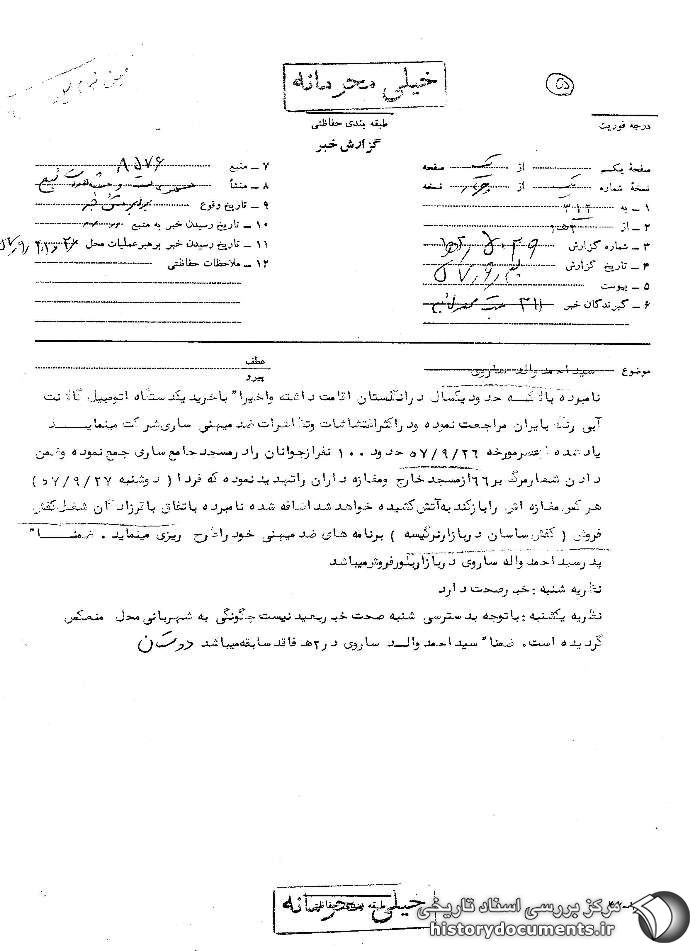 خیلی محرمانه
طبقه بندی حفاظتی
گزارش خبر
درجه فوریت
صفحه یک از یک صفحه
نسخه شماره یک از نسخه
۱ – به ۳۱۲
۲ – از ۲ه
۳ – شماره گزارش
۴ – تاریخ گزارش
۵ – پیوست
۶ – گیرندگان خبر
۷ – منبع ۸۵۷۶
۸ – منشأ
۹ – تاریخ وقوع
۱۰ – تاریخ رسیدن خبر به منبع
۱۱ – تاریخ رسیدن خبر برهبرعملیات محل
۱۲ – ملاحظات حفاظتی
موضوع سید احمد واله ساروی
عطف
پیرو
نامبرده بالا که حدود یکسال در انگلستان اقامت داشته واخیرا" باخرید یکدستگاه اتومبیل گالانت
آبی رنگ بایران مراجعت نموده ودراکثراغتشاشات وتظاهرات ضد میهنی ساری شرکت مینماید
یاد شده عصرمورخه ۵۷/۹/۲۶ حدود ۱۰۰ نفرازجوانان رادرمسجد جامع ساری جمع نموده وضمن
دادن شعارمرگ بر ۶۶ ازمسجد خارج ومغازه داران راتهدید نموده که فردا ( دوشنبه ۵۷/۹/۲۷ )
هرکس مغازه اش راباز کند به آتش کشیده خواهد شد اضافه شده نامبرده باتفاق شغل کفش
فروش ( کفش ساسان دربازارنرگسیه ) برنامه های ضد میهنی خود راطرح ریزی مینماید . ضمنا"
پدرسید احمد واله ساروی دربازاربلورفروش میباشد
نظریه شنبه : خبرصحت دارد
نظریه یکشنبه : باتوجه بدسترسی شنبه صحت خبربعید نیست چگونگی به شهربانی محل منعکس
گردیده است . ضمنا" سید احمد والـه ساروی در۲ه فاقد سابقه میباشد دوستان
خیلی محرمانه
مرکز بررسی اسناد تاریخی
historydocuments.ir